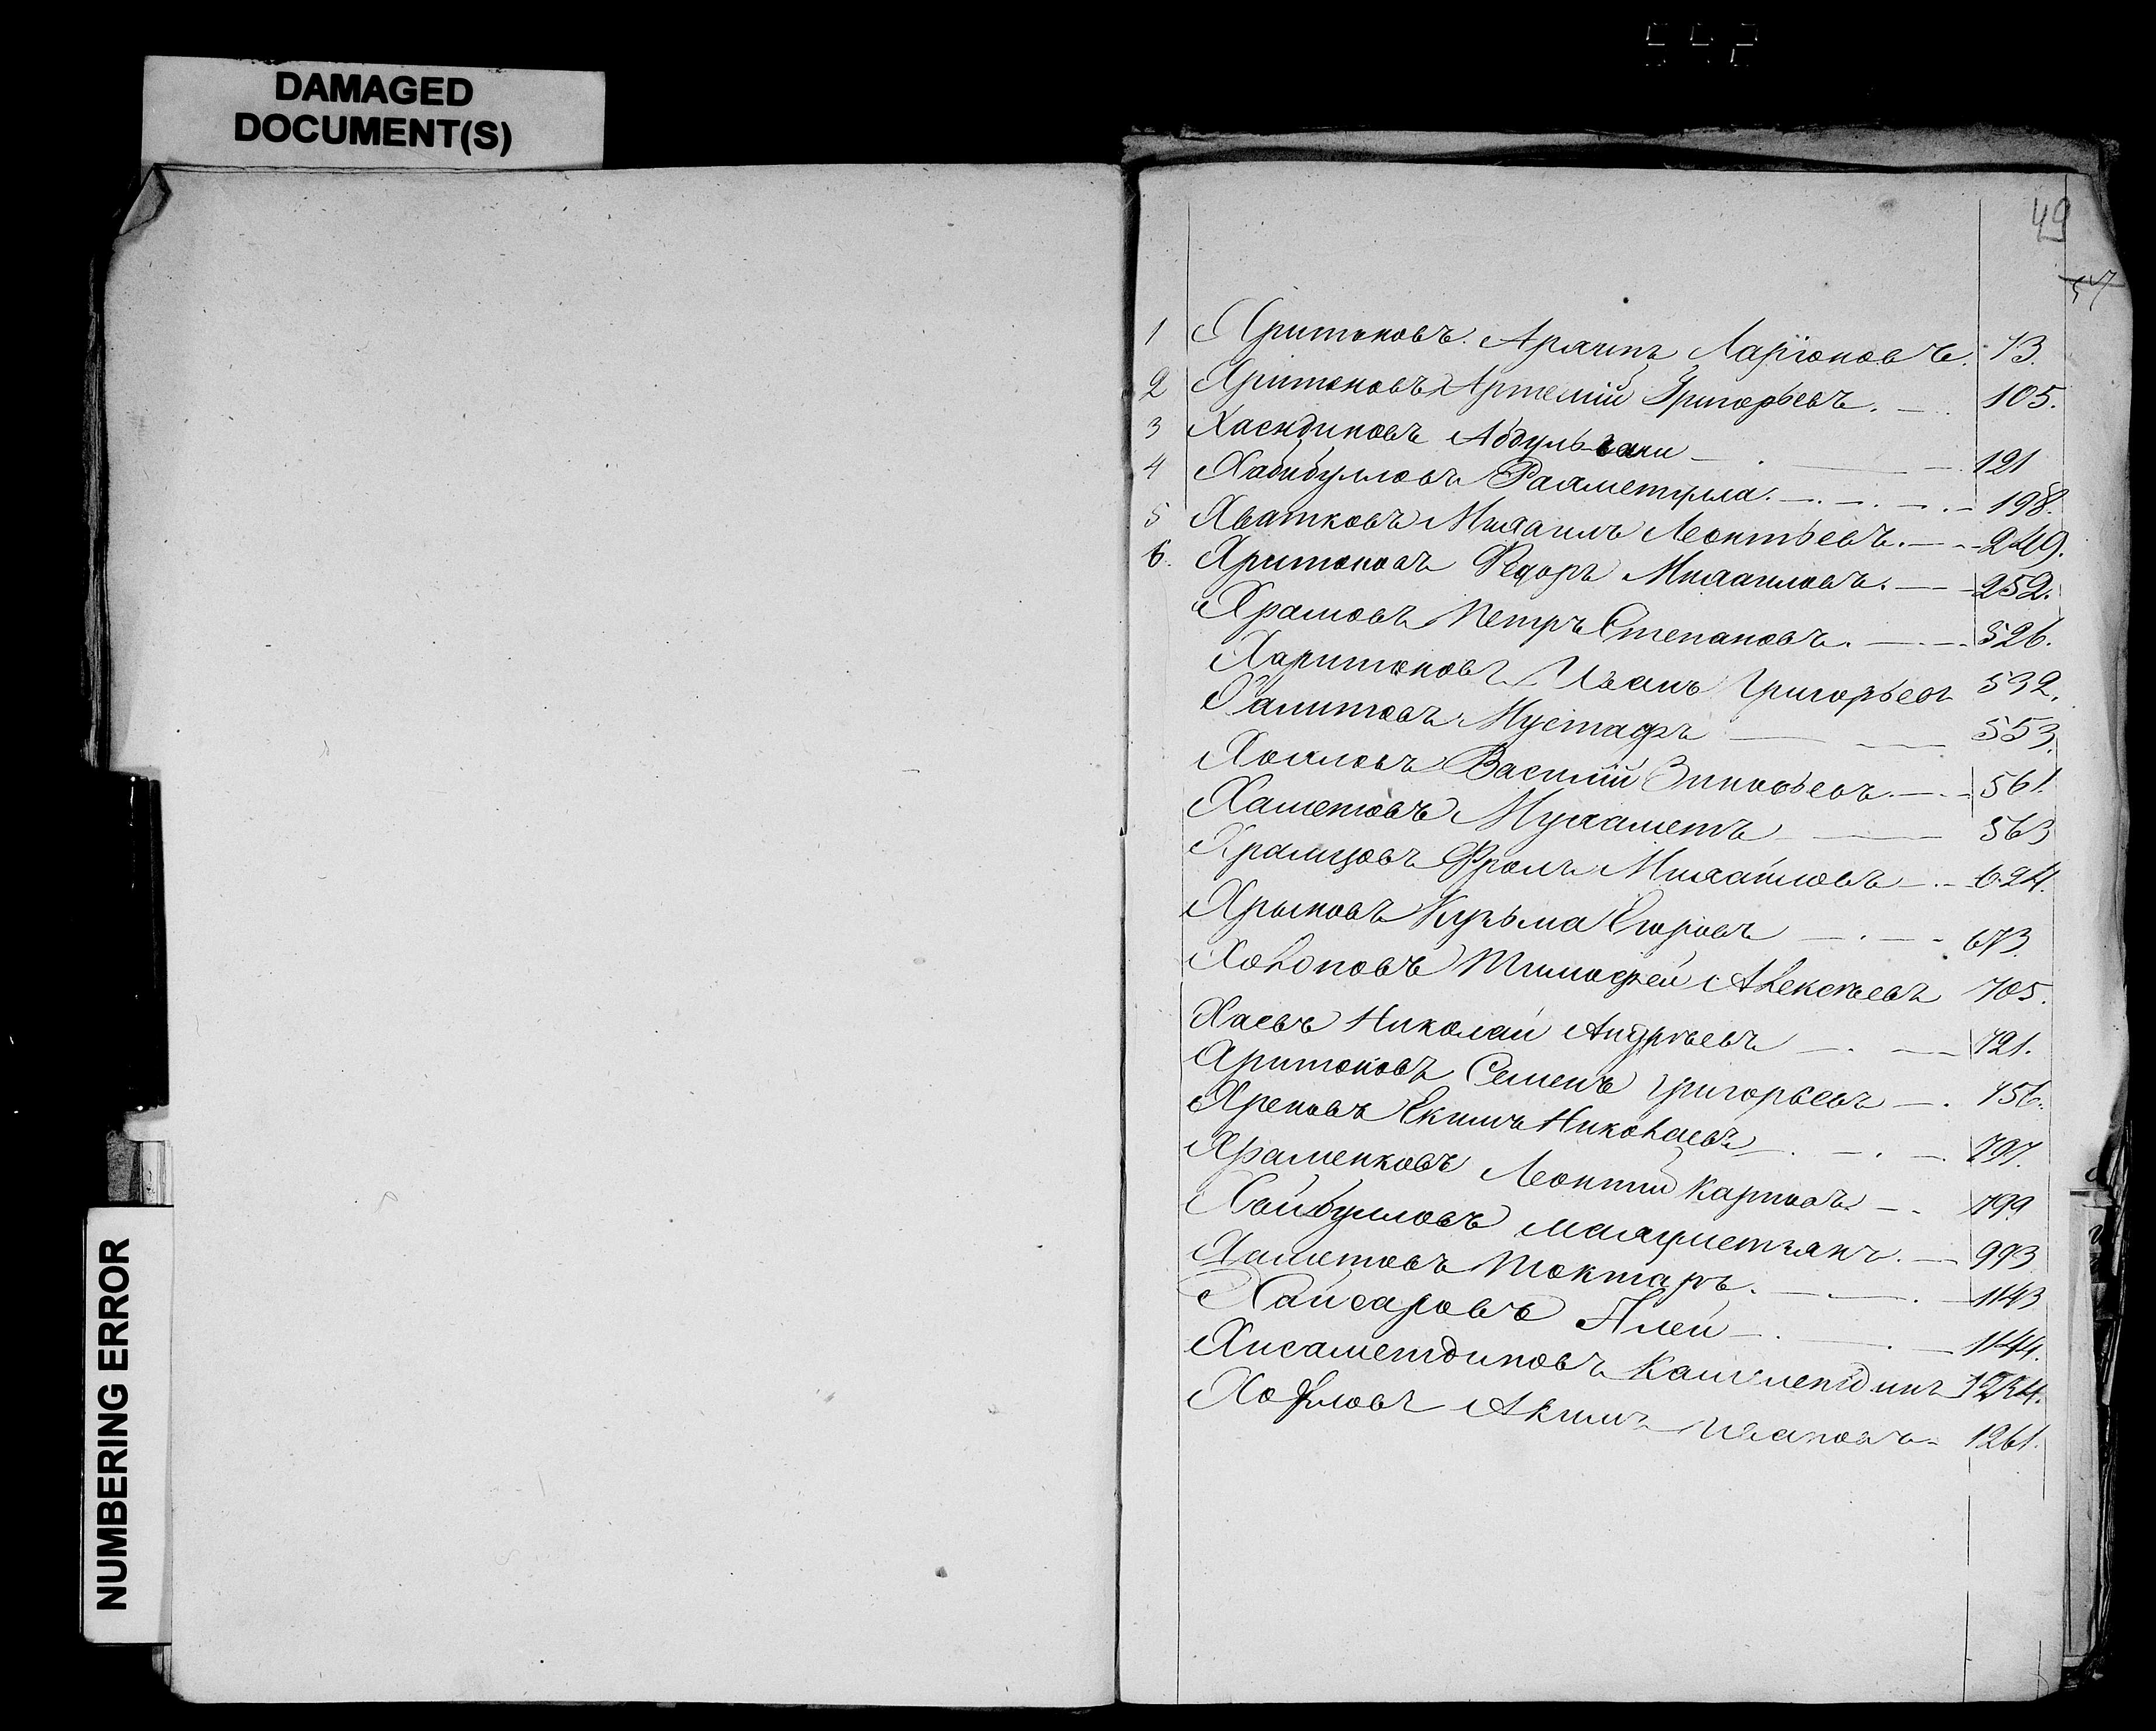 DAMAGED
DOCUMENT(S)
NUMBERING ERROR
49
57
1 Хритоновъ Архипъ Ларіоновъ. 73.
2 Хритоновъ Артемій Григорьевъ. 105.
3 Хаендиновъ Абдуль 121
4 Хабибулловъ 198.
5 Хватковъ Михаилъ Леонтьевъ. 249.
6. Хритоновъ Федоръ Михаиловъ. 252.
Храмовъ Петръ Степановъ. 526.
Харитоновъ Иванъ Григорьевъ 532.
Халитовъ Мустафъ 553.
Хохловъ Василій Зиновьевъ. 561.
Хаметовъ Мухаметъ 563
Храмцовъ Фролъ Михайловъ 624.
Хрыновъ Кузьма Егоровъ 673.
Тимофей Алексѣевъ 705.
Хаевъ Николай Андрѣевъ 721.
Хритоновъ Семенъ Григорьевъ 756.
Хреновъ Екимъ Николаевъ 797.
Храменковъ Леонтій Карповъ 799
Хайбулловъ 993
Хаметовъ Токтаръ. 1143
Хайсаровъ Алей 1144.
Хисаметдиновъ 1254.
Хохловъ Акимъ Ивановъ 1261.